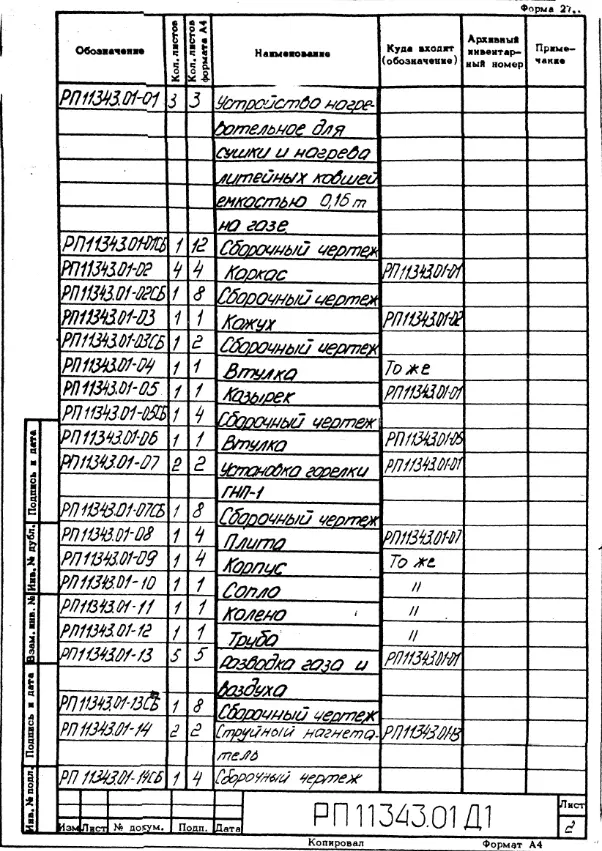 Форма 2
Обозначение Кол. листов Кол. листов формата А4 Наименование Куда входит (обозначение) Архивный инвентарный номер Примечание
РП11343.01-01 3 3 Устройство нагре-
вательное для
сушки и нагрева
литейных ковшей
емкостью 0,15т
на газе
РП11343.01-01СБ 1 12 Сборочный чертеж
РП11343.01-02 4 4 Каркас РП11343.01-01
РП11343.01-02СБ 1 8 Сборочный чертеж
РП11343.01-03 1 1 Кожух РП11343.01-02
РП11343.01-03СБ 1 2 Сборочный чертеж
РП11343.01-04 1 1 Втулка То же
РП11343.01-05 1 1 Казырек РП11343.01-01
РП11343.01-05СБ 1 4 Сборочный чертеж
РП11343.01-06 1 1 Втулка РП11343.01-05
РП11343.01-07 2 2 Установка горелки РП11343.01-01
ГНП-1
РП11343.01-07СБ 1 8 Сборочный чертеж
РП11343.01-08 1 4 Плита РП11343.01-07
РП11343.01-09 1 4 Корпус То же
РП11343.01-10 1 1 Сопло //
РП11343.01-11 1 1 Колено //
РП11343.01-12 1 1 Труба //
РП11343.01-13 5 5 Разводка газа и РП11343.01-01
воздуха
РП11343.01-13СБ 1 8 Сборочный чертеж
РП11343.01-14 2 2 Струйный нагнета- РП11343.01-13
тель
РП 11343.01-14СБ 1 4 Сборочный чертеж
Подпись и дата
Инв. № дубл.
Взам. инв. №
Подпись и дата
Инв. № подл.
РП11343.01 Д1
Лист
2
Изм Лист № докум. Подп. Дата
Копировал Формат А4